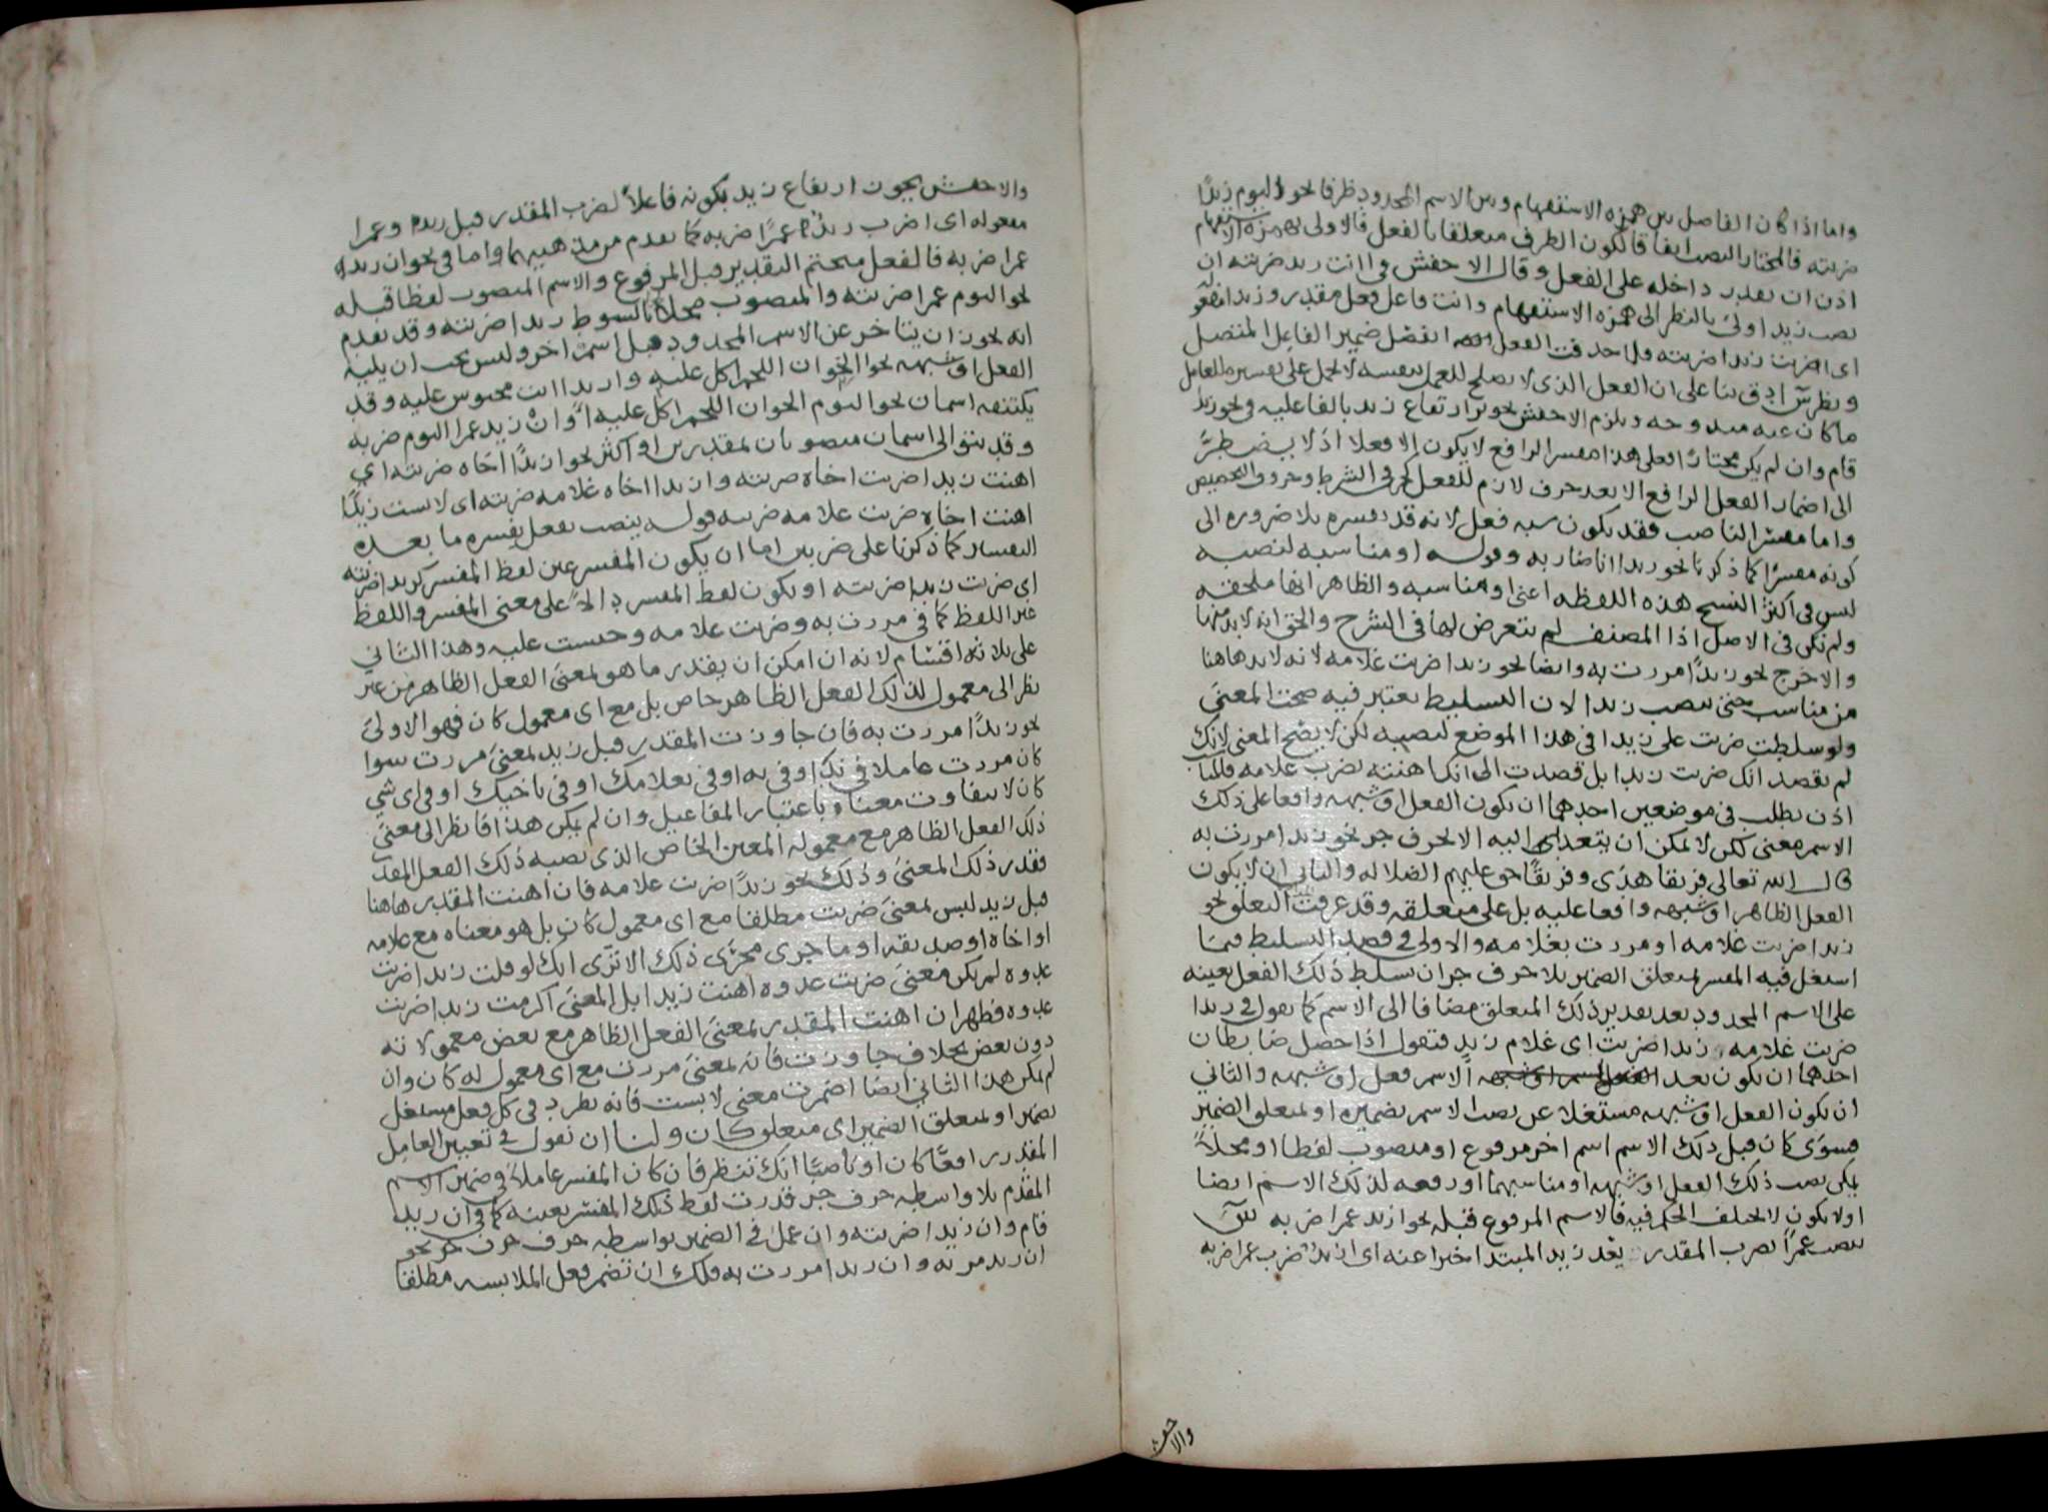 واما اذا كان الفاصل بين همزه الاستفهام وبين الاسم المحدود ظرفا نحو اليوم زيدًا
ضربته فالمختار النصب ايضا فالكون الظرف متعلقا بالفعل فالاولى بهمزة الاستفهام
اذن ان تقدر داخله على الفعل وقال الاخفش في اانت زيد ضربته ان
نصب زيد اولى بالنظر الى همزه الاستفهام وانت فاعل فعل مقدر وزيدا مفعوله
اى اضربت زيدا ضربته فلما حذفت الفعل انفصل ضمير الفاعل المتصل
ونظر س ادق بنا على ان الفعل الذى لا يصلح للعمل بنفسه لا يحمل على تفسيره للعامل
ما كان عنه مندوحه ويلزم الاخفش تجويز ارتفاع زيد بالفاعليه في نحو زيد
قام وان لم يكن مختارًا فعلى هذا مفسر الرافع لا يكون الا فعلا اذ لا يضطر
الى اضمار الفعل الرافع الا بعد حرف لازم للفعل كحرفى الشرط وحروف التحضيض
واما مفسر الناصب فقد يكون شبه فعل لانه قد يفسره بلا ضروره الى
كونه مفسرًا كما ذكرنا نحو زيدا انا ضاربه وقوله او مناسبه لنصبه
ليس في اكثر النسخ هذه اللفظه اعنى او مناسبه والظاهر انها ملحقه
ولم تكن في الاصل اذا المصنف لم يتعرض لها في الشرح والحق انه لا بد منها
والا خرج نحو زيدًا مررت به وايضا نحو زيدا ضربت غلامه لانه لا بد هاهنا
من مناسب حتى ينصب زيدا لان التسليط يعتبر فيه صحة المعنى
ولو سلطت ضربت على زيدا في هذا الموضع لنصبه لكن لا يصح المعنى لانك
لم تقصد انك ضربت زيدا بل قصدت الى انك اهنته بضرب غلامه فالمناسب
اذن يطلب في موضعين احدهما ان يكون الفعل او شبهه واقعا على ذلك
الاسم معنى لكن لا يمكن ان يتعدى اليه الا بحرف جر نحو زيدا مررت به
قال الله تعالى فريقا هدى وفريقًا حق عليهم الضلاله والثانى ان لا يكون
الفعل الظاهر او شبهه واقعا عليه بل على متعلقه وقد عرفت التعلق نحو
زيدا ضربت غلامه او مررت بغلامه والاولى في قصد التسليط فيما
اشتغل فيه المفسر بمتعلق الضمير بلا حرف جر ان تسلط ذلك الفعل بعينه
على الاسم المحدود بعد تقدير ذلك المتعلق مضافا الى الاسم كما تقول في زيدا
ضربت غلامه زيدا ضربت اى غلام زيد فتقول اذا حصل ضابطان
احدهما ان يكون بعد الاسم فعل او شبهه والثاني
ان يكون الفعل او شبهه مشتغلا عن نصب الاسم بضميره او بمتعلق الضمير
فسوى كان قبل ذلك الاسم اسم اخر مرفوع او منصوب لفظا او محلاً
يمكن نصب ذلك الفعل او شبهه او مناسبهما او رفعه لذلك الاسم ايضا
اولا يكون لا يختلف الحكم فيه فالاسم المرفوع قبله نحو ازيد عمرا ضربه س
ينصب عمرًا بضرب المقدر بعد زيد المبتدا خبرا عنه اى ازيد ضرب عمرا ضربه
والاخفش
والاخفش يجوز ارتفاع زيد بكونه فاعلاً لضرب المقدر قبل زيد وعمرا
مفعوله اى اضرب زيدٌ عمرًا ضربه كما تقدم من مذهبيهما واما في نحو ان زيد
عمرا ضربه فالفعل متحتم التقدير قبل المرفوع والاسم المنصوب لفظا قبله
نحو اليوم عمرا ضربته والمنصوب محلاً نحو ابالسوط زيدا ضربته وقد تقدم
انه يجوز ان يتاخر عن الاسم المحدود قبل اسم اخر وليس يجب ان يليه
الفعل او شبهه نحو الخوان اللحم اكل عليه وازيدا انت محبوس عليه وقد
يكتنفه اسمان نحو اليوم الخوان اللحم اكل عليه او ان زيد عمرا اليوم ضربه
وقد يتوالى اسمان منصوبان لمقدرين او اكثر نحو ازيدًا اخاه ضربته اي
اهنت زيدا ضربت اخاه ضربته وازيدا اخاه غلامه ضربته اى لابست زيدًا
اهنت اخاه ضربت غلامه ضربته قوله ينصب بفعل يفسره ما بعده
التفسير كما ذكرنا على ضربين اما ان يكون المفسر عين لفظ المفسر كزيدا ضربته
اى ضربت زيدا ضربته او يكون لفظ المفسر دالاً على معنى المفسر واللفظ
غير اللفظ كما في مررت به وضربت غلامه وحبست عليه وهذا الثاني
على ثلاثه اقسام لانه ان امكن ان يقدر ما هو بمعنى الفعل الظاهر من غير
نظر الى معمول لذلك الفعل الظاهر خاص بل مع اى معمول كان فهو الاولى
نحو زيدًا مررت به فان جاوزت المقدر قبل زيد بمعنى مررت سوا
كان مررت عاملا في زيد او في به او في بغلامك او في باخيك او في اى شي
كان لا يتفاوت معناه باعتبار المفاعيل وان لم يكن هذا فانظر الى معنى
ذلك الفعل الظاهر مع معموله المعين الخاص الذى نصبه ذلك الفعل المقدر
فقدر ذلك المعنى وذلك نحو زيدًا ضربت غلامه فان اهنت المقدر هاهنا
قبل زيد ليس بمعنى ضربت مطلقا مع اى معمول كان بل هو معناه مع غلامه
او اخاه او صديقه او ما جرى مجرى ذلك الا ترى انك لو قلت زيدا ضربت
عدوه لم يكن معنى ضربت عدوه اهنت زيدا بل المعنى اكرمت زيدا ضربت
عدوه فظهر ان اهنت المقدر بمعنى الفعل الظاهر مع بعض معمولاته
دون بعض بخلاف جاوزت فانه بمعنى مررت مع اى معمول له كان وان
لم يكن هذا الثاني ايضا اضمرت معنى لابست فانه يطرد في كل فعل مشتغل
بضمير او بمتعلق الضمير اى متعلق كان ولنا ان نقول في تعيين العامل
المقدر رافعًا كان او ناصبًا انك تنظر فان كان المفسر عاملاً في ضمير الاسم
المقدم بلا واسطه حرف جر قدرت لفظ ذلك المفسر بعينه كما في ان زيد
قام وان زيدا ضربته وان عمل في الضمير بواسطه حرف جر نحو
ان زيد مر به وان زيدا مررت به فلك ان تضمر فعل الملابسه مطلقا